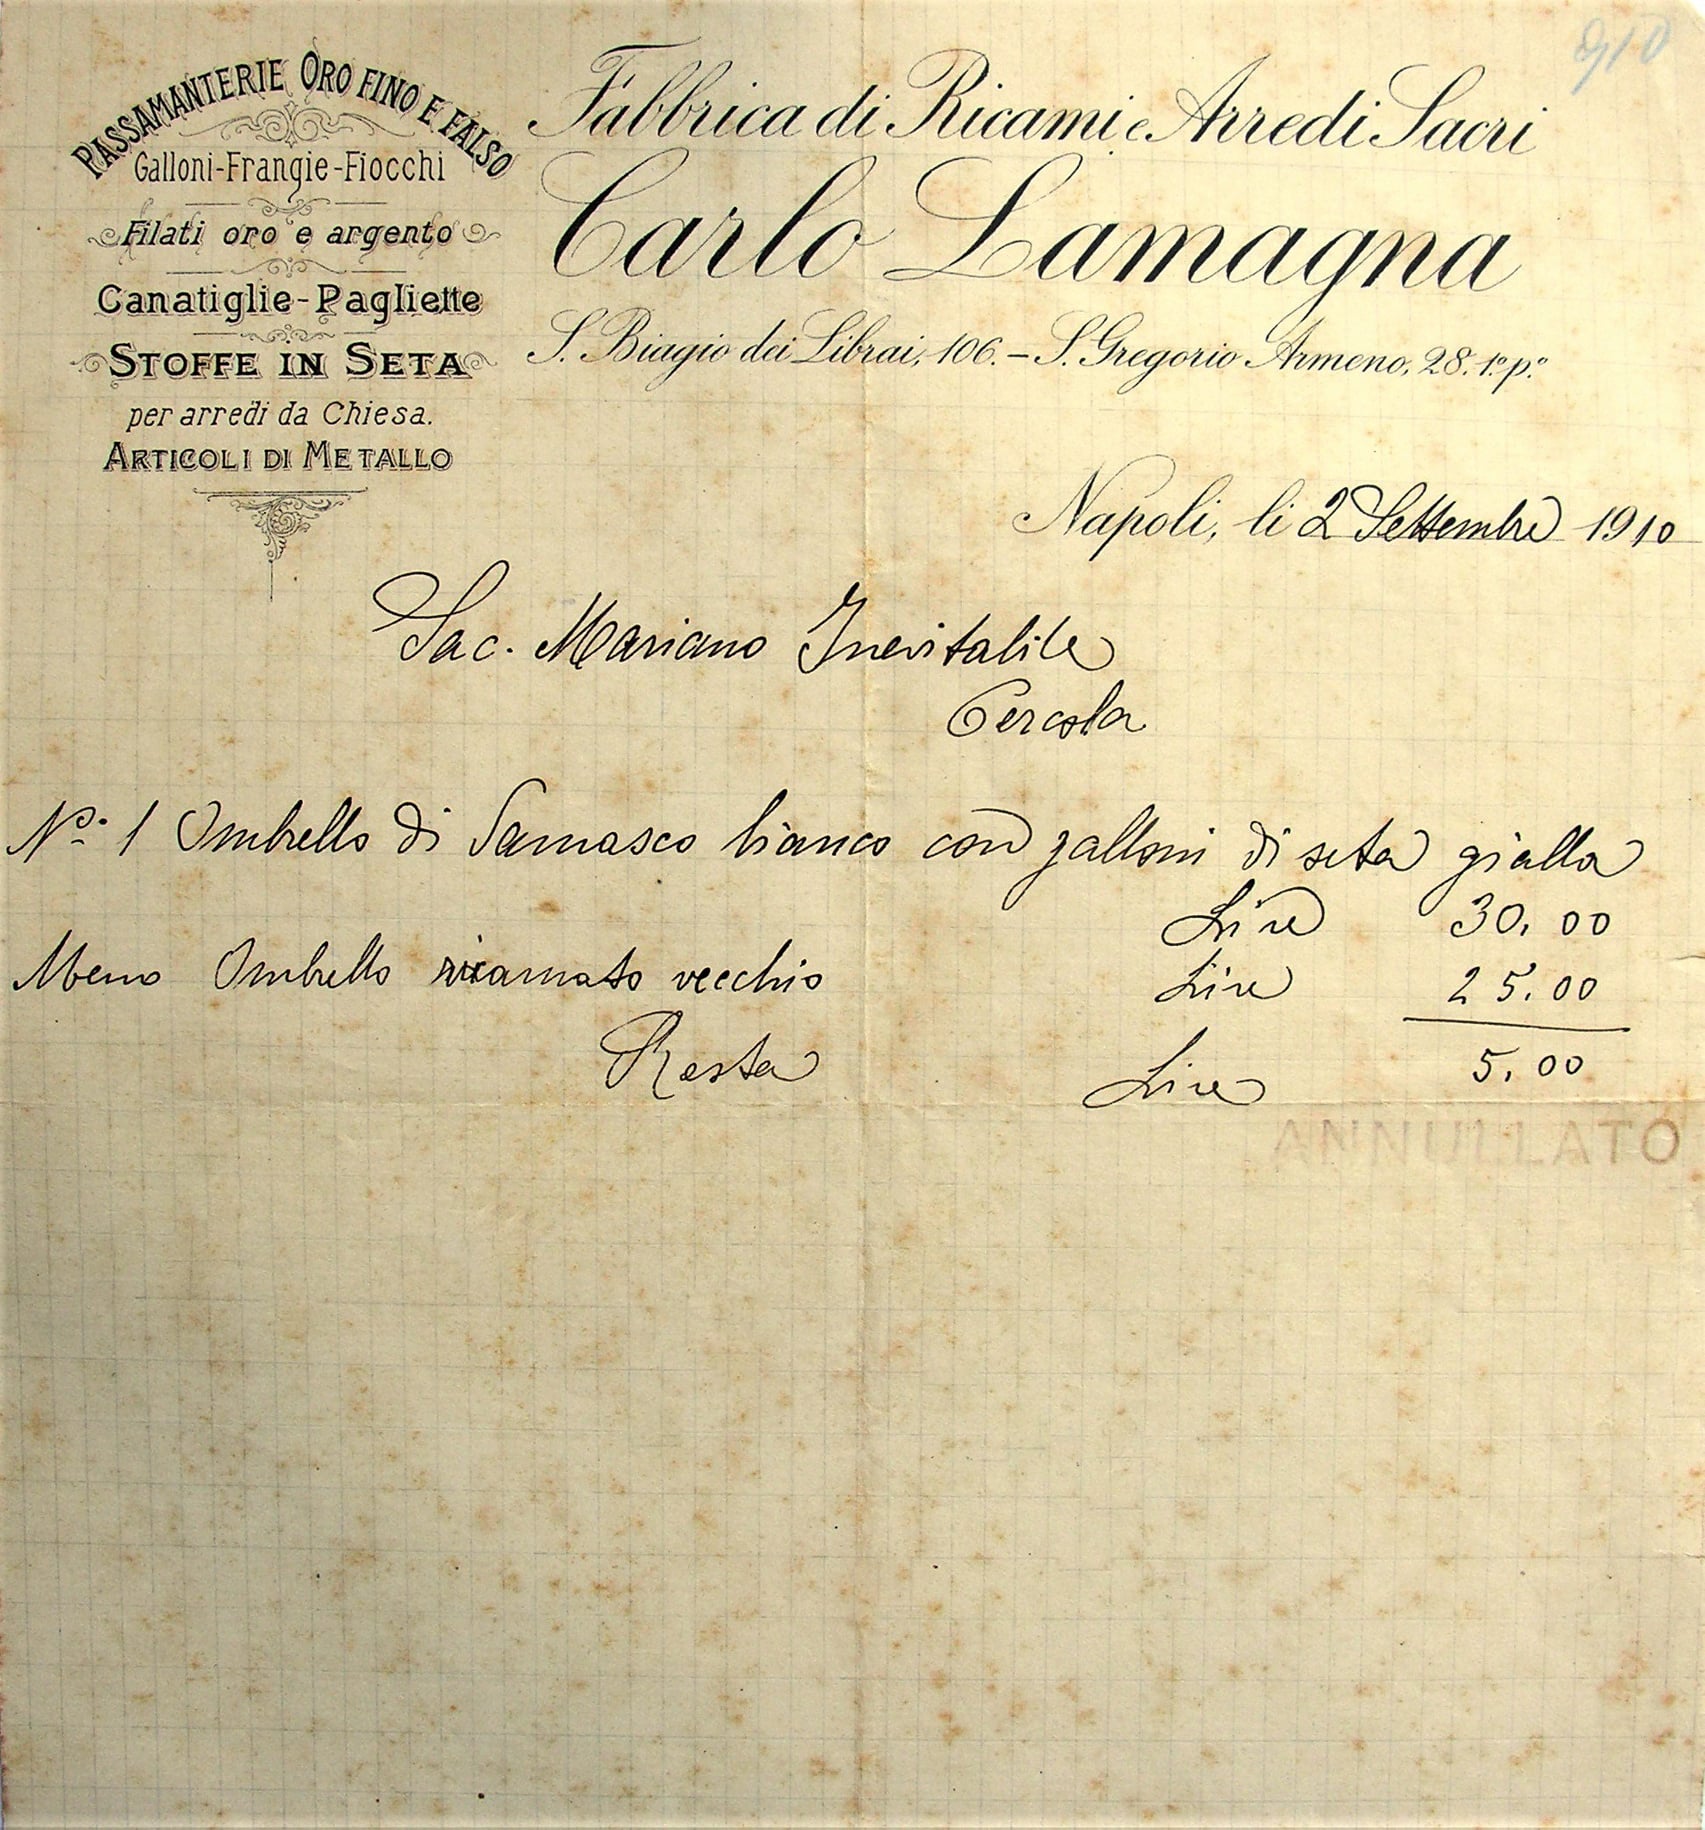 910
PASSAMANTERIE ORO FINO E FALSO
Galloni-Frangie-Fiocchi
Filati oro e argento
Canatiglie-Pagliette
STOFFE IN SETA
per arredi da Chiesa.
ARTICOLI DI METALLO
Fabbrica di Ricami e Arredi Sacri
Carlo Lamagna
S. Biagio dei Librai, 106. – S. Gregorio Armeno, 28. 1º pº
Napoli, li 2 Settembre 1910
Sac. Mariano Inevitabile
Cercola
Nº. 1 Ombrello di Damasco bianco con galloni di seta gialla
Lire 30,00
Meno Ombrello ricamato vecchio Lire 25,00
Resta Lire 5,00
ANNULLATO